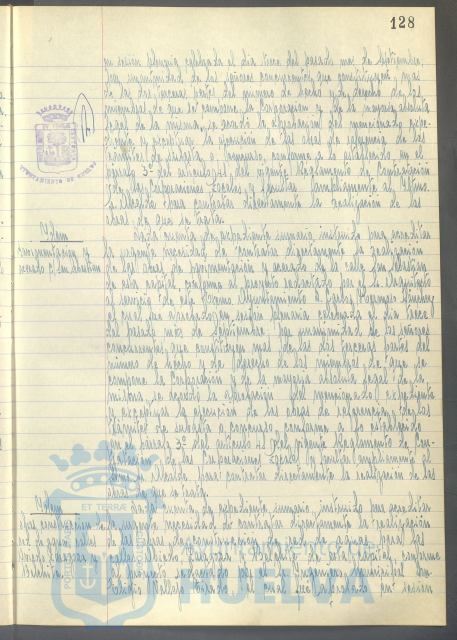 128
en sesión plenaria celebrada el día trece del pasado mes de Septiembre,
por unanimidad de los señores concurrentes, que constituyen mas
de las dos terceras partes del número de hecho y de derecho de los
miembros de que se compone la Corporación y de la mayoría absoluta
legal de la misma, se acordó la aprobación del mencionado expe-
diente y exceptuar la ejecución de las obras de referencia de los
trámites de subasta o concurso, conforme a lo establecido en el
párrafo 3º del artículo 41 del vigente Reglamento de Contratación
de las Corporaciones Locales y facultar ampliamente al Iltmo.
Sr. Alcalde para contratar directamente la realización de las
obras de que se trata.
Idem
pavimentación y
acerado c/ San Sebastian
Dada cuenta de expediente sumario instruido para acreditar
la urgente necesidad de contratar directamente la realización
de las obras de pavimentación y acerado de la calle San Sebastian
de esta capital, conforme al proyecto redactado por el Sr. Arquitecto
al servicio de este Excmo. Ayuntamiento D.
el cual fue aprobado en sesión plenaria celebrada el día trece
del pasado mes de Septiembre, por unanimidad de los señores
concurrentes, que constituyen mas de las dos terceras partes del
número de hecho y de derecho de los miembros de que se
compone la Corporación y de la mayoría absoluta legal de la
misma, se acordó la aprobación del mencionado expediente
y exceptuar la ejecución de las obras de referencia de los
trámites de subasta o concurso, conforme a lo establecido
en el párrafo 3º del artículo 41 del vigente Reglamento de Con-
tratación de las Corporaciones Locales y facultar ampliamente al
Iltmo. Sr. Alcalde para contratar directamente la realización de las
obras de que se trata.
Idem
obras construcción
red de aguas calles
Dada cuenta de expediente sumario, instruido para acreditar
la urgente necesidad de contratar directamente la realización
de las obras de construcción de red de aguas para las
calles de esta capital, conforme
al proyecto redactado por el Sr. Ingeniero municipal Don
el cual fue aprobado en sesión
ET TERRAE
HUELVA